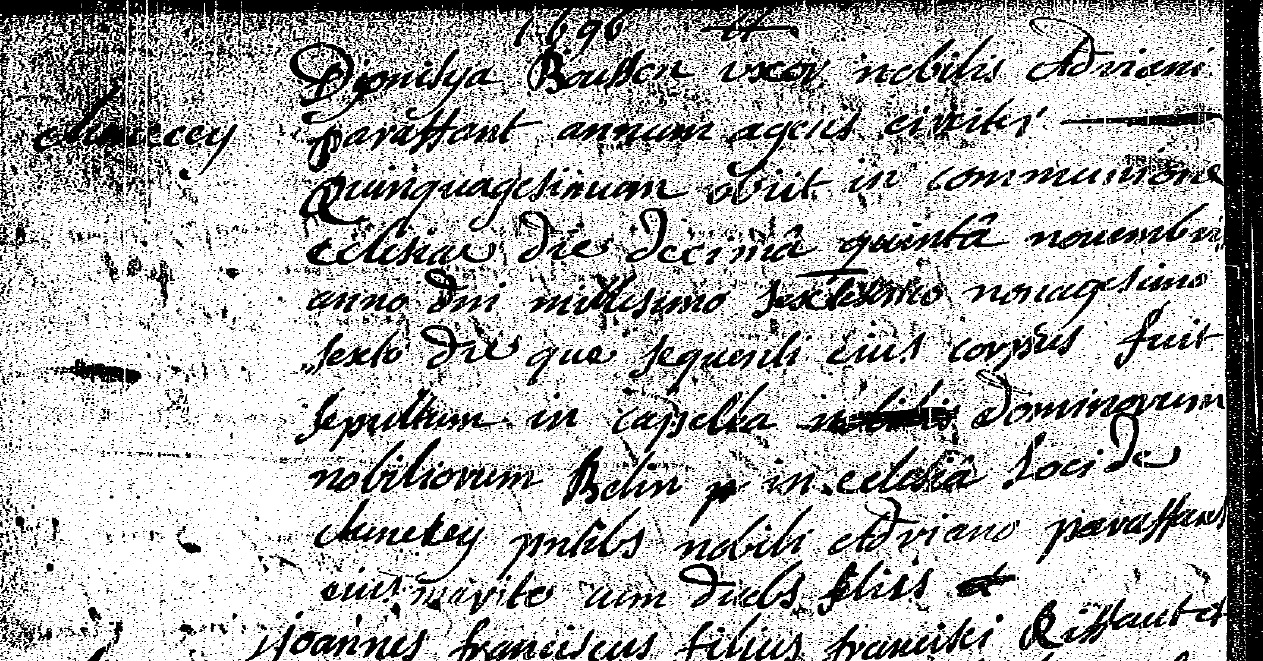 1696
Dionisya Boussen uxor nobilis Adriani
parassont annum agens circiter
Quinquagesimum obiit in communione
eclesiae die decimâ quintâ novembris
anno dni millesimo sexcentesimo nonagesimo
sexto die que sequenti eius corpus fuit
sepultum in capella nobilis Dominorum
nobiliorum Belin in eclesiâ Loci de
Amekey pntibs nobili Adriano
eius marito cum duabs filiis et
Joannes franciscus filius francisci